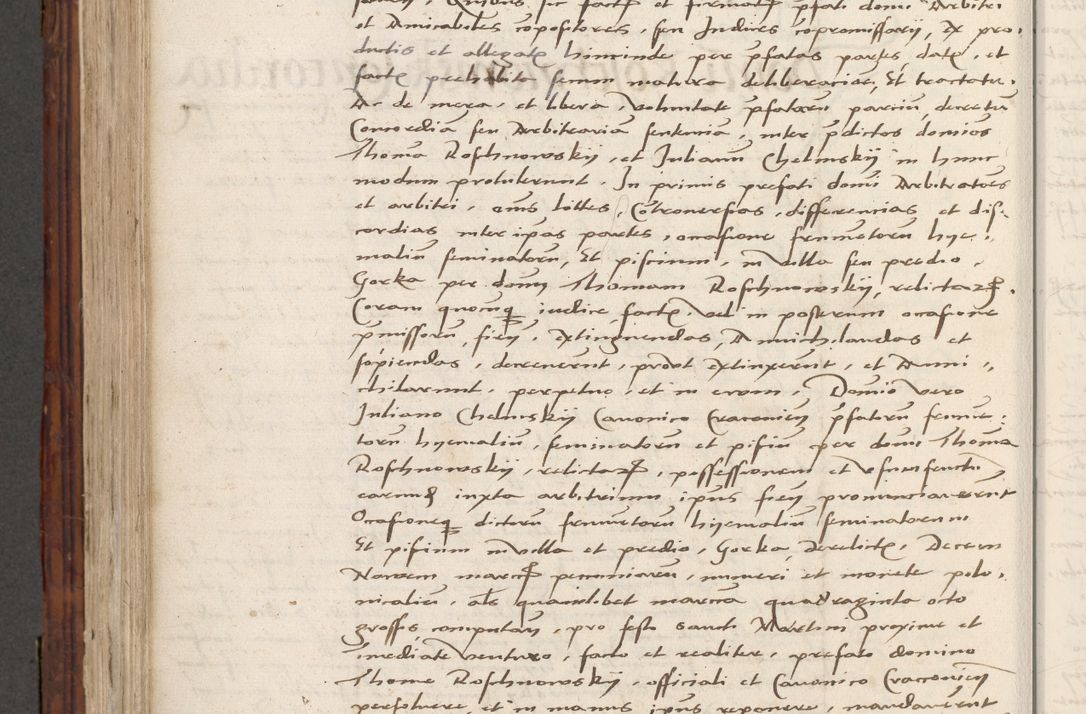 et Amicabiles copositores, seu Judices copromissarij, Ex pro
ductis et allegatis hincinde per pfatas partes, datis, et
factis prehabita senum matura deliberacione, Et tractatu,
Ac de mera, et libera, voluntate pfatorum parcium, decretum
Concordiam seu Arbitrariam sententiam, inter pdictos dominos
Thoma Roschnowskij, et Julianum Chelmskij in hunc
modum protulerunt. In primis prefati domini Arbitratores
et arbitri, omnes littes, Controuersias, differencias et dis-
cordias inter ipsas partes, occasione frumentorum hye-
malium seminatorum, Et piscium, in villa seu predio,
Gorka per domin Thomam Roschnowskij, relictarum.
Coram quocumque iudice, factis, vel in posterum occasione
pmissorum, fieri, extinguendas, Annichilandas et
sopiendas, decreuerunt, prout extinxerunt, et Anni-
chilarunt, perpetuo, et in euom, Domino vero
Juliano Chelmskij Canonico Cracouien pfatorum frumen-
torum hyemalium, seminatorum et pisium per domin Thoma
Roschnowskij, relictarum, possessionem et vsumfructum
earumque iuxta arbitrium ipsius fieri pronunciauerunt
Occasioneque dictorum frumentorum hyemalium seminatorum
Et pisium in villa et predio, Gorka, derelictis, Decem
Nouem marcarum pecuniarum, numeri et monete polo-
nicalium, als quamlibet marcam quadraginta octo
grossis computan, pro festo sancti Martini proxime et
immediate venturo, facto et realiter, prefato domino
Thome Roschnowskij, officiali et Canonico Cracouien
persoluere, et in manus ipsius reponere, mandauerunt